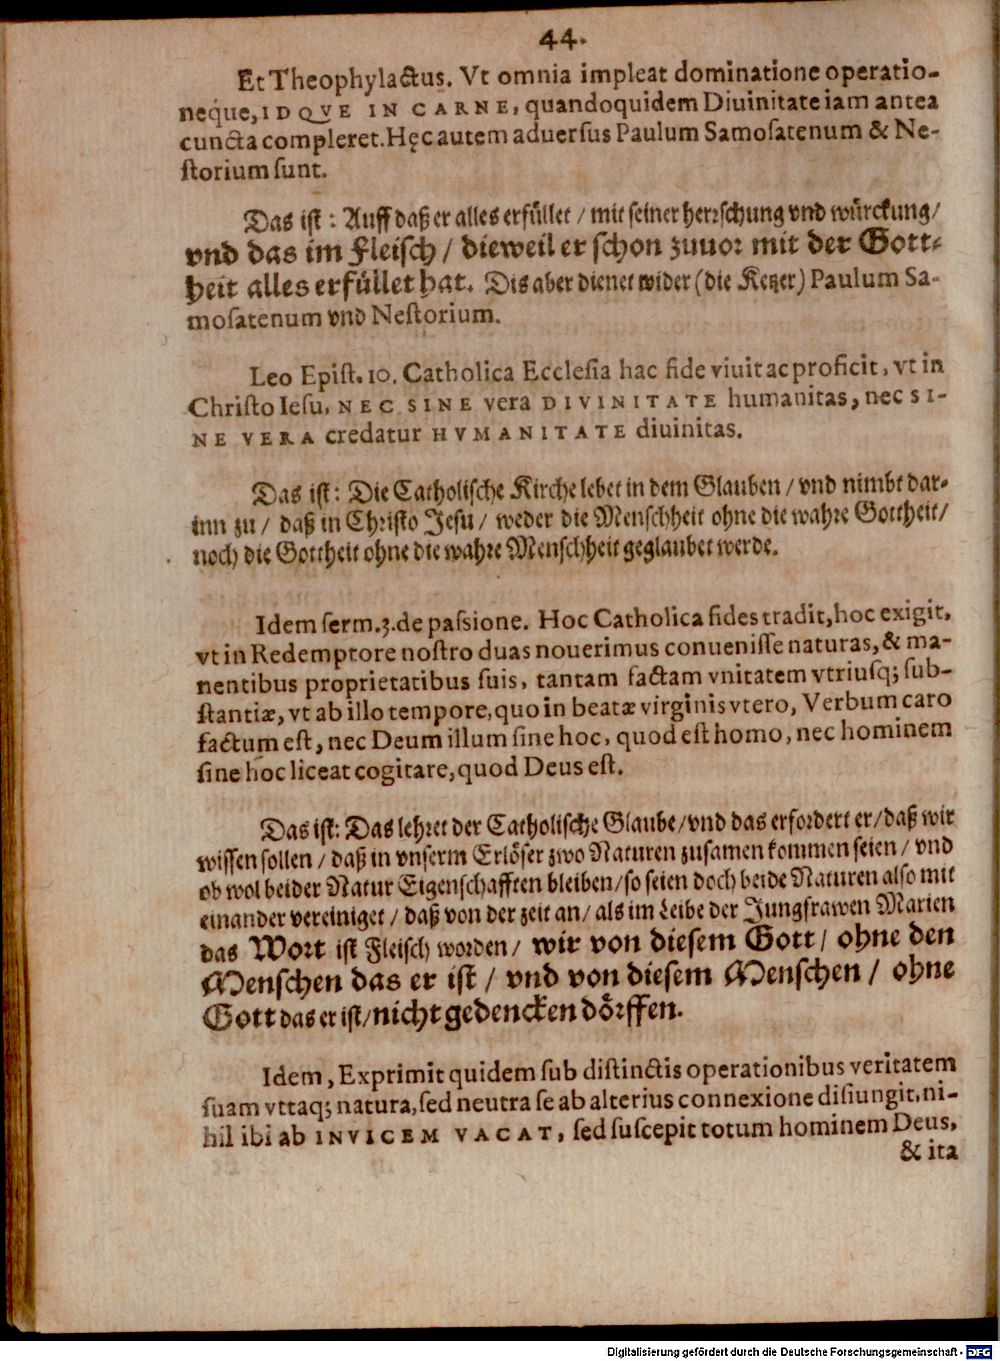 44.
Et Theophylactus. Vt omnia impleat dominatione operatio-
neque, IDQVE IN CARNE, quandoquidem Diuinitate iam antea
cuncta compleret. Hęc autem aduersus Paulum Samosatenum & Ne-
storium sunt.
Das ist: Auff daß er alles erfüllet / mit seiner herrschung vnd würckung /
vnd das im Fleisch / dieweil er schon zuuor mit der Gott-
heit alles erfüllet hat. Dis aber dienet wider (die Ketzer) Paulum Sa-
mosatenum vnd Nestorium.
Leo Epist. 10. Catholica Ecclesia hac fide viuit ac proficit, vt in
Christo Iesu, NEC SINE vera DIVINITATE humanitas, nec SI-
NE VERA credatur HVMANITATE diuinitas.
Das ist: Die Catholische Kirche lebet in dem Glauben / vnd nimbt dar-
inn zu / daß in Christo Jesu / weder die Menschheit ohne die wahre Gottheit /
noch die Gottheit ohne die wahre Menschheit geglaubet werde.
Idem serm. 3. de passione. Hoc Catholica fides tradit, hoc exigit,
vt in Redemptore nostro duas nouerimus conuenisse naturas, & ma-
nentibus proprietatibus suis, tantam factam vnitatem vtriusq; sub-
stantiæ, vt ab illo tempore, quo in beatæ virginis vtero, Verbum caro
factum est, nec Deum illum sine hoc, quod est homo, nec hominem
sine hoc liceat cogitare, quod Deus est.
Das ist: Das lehret der Catholische Glaube / vnd das erfordert er / daß wir
wissen sollen / daß in vnserm Erlöser zwo Naturen zusamen kommen seien / vnd
ob wol beider Natur Eigenschafften bleiben / so seien doch beide Naturen also mit
einander vereiniget / daß von der zeit an / als im Leibe der Jungfrawen Marien
das Wort ist Fleisch worden / wir von diesem Gott / ohne den
Menschen das er ist / vnd von diesem Menschen / ohne
Gott das er ist / nicht gedencken dörffen.
Idem, Exprimit quidem sub distinctis operationibus veritatem
suam vttaq; natura, sed neutra se ab alterius connexione disiungit, ni-
hil ibi ab INVICEM VACAT, sed suscepit totum hominem Deus,
& ita
Digitalisierung gefördert durch die Deutsche Forschungsgemeinschaft - DFG